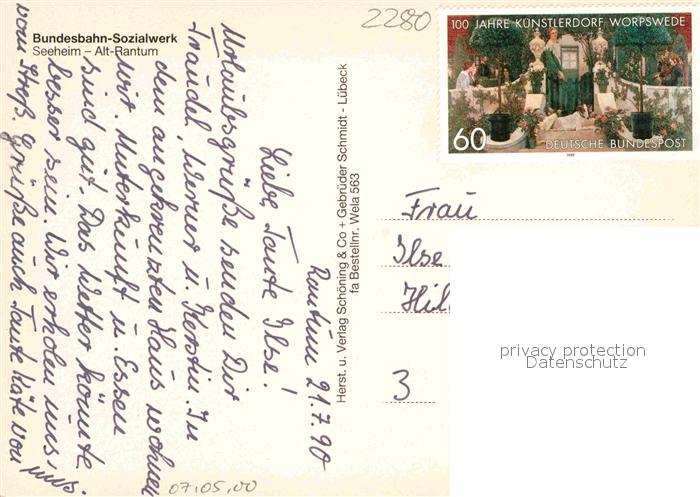 Bundesbahn-Sozialwerk
Seeheim – Alt-Rantum
2280
100 JAHRE KÜNSTLERDORF WORPSWEDE
60
DEUTSCHE BUNDESPOST
1989
Rantum 21.7.90
Liebe Tante Ilse!
Urlaubsgrüße senden Dir
Traudel, Werner u. Kerstin. In
dem angekreuzten Haus wohnen
wir. Unterkunft u. Essen
sind gut. Das Wetter könnte
besser sein. Wir erholen uns
vom Streß. Grüße auch Tante Käte von uns.
07.05.00
Herst. u. Verlag Schöning & Co + Gebrüder Schmidt - Lübeck
fa Bestellnr. Wela 563
Frau
Ilse
Hil
3
privacy protection
Datenschutz